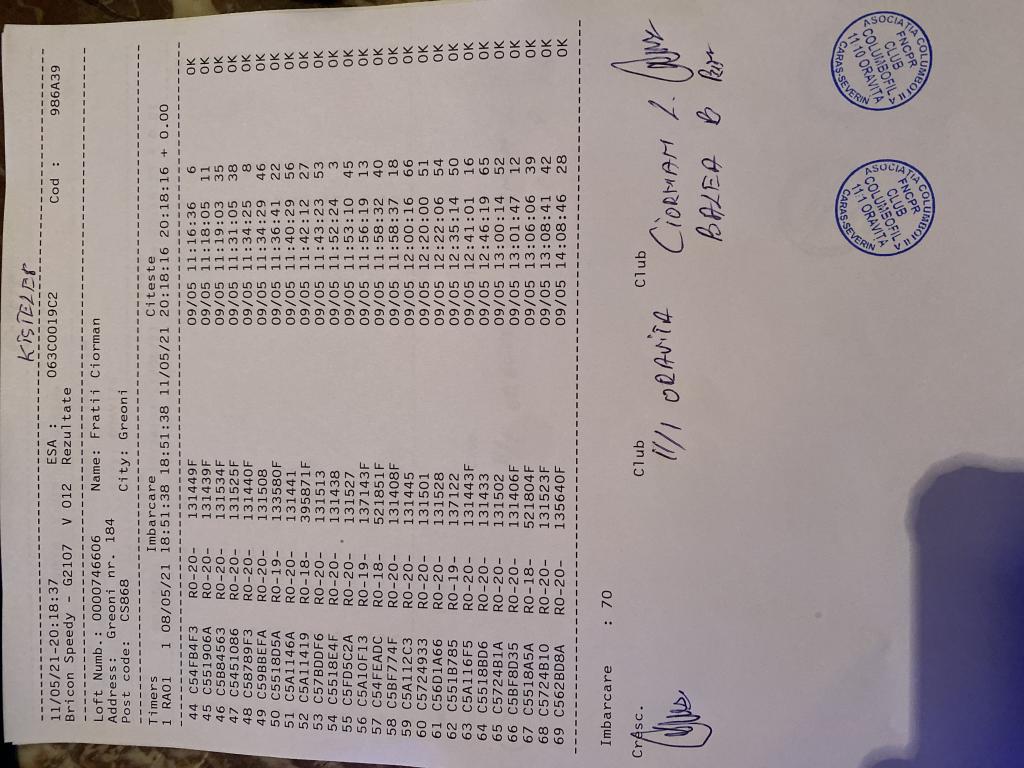 KISTELEP
11/05/21-20:18:37 ESA : 063C0019C2 Cod : 986A39
Bricon Speedy - G2107 V 012 Rezultate
Loft Numb.: 0000746606 Name: Fratii Ciorman
Address: Greoni nr. 184
Post code: CS868 City: Greoni
Timers Imbarcare Citeste
1 RA01 1 08/05/21 18:51:38 18:51:38 11/05/21 20:18:16 20:18:16 + 0.00
44 C54FB4F3 RO-20- 131449F 09/05 11:16:36 6 OK
45 C551906A RO-20- 131439F 09/05 11:18:05 11 OK
46 C5B84563 RO-20- 131534F 09/05 11:19:03 35 OK
47 C5451086 RO-20- 131525F 09/05 11:31:05 38 OK
48 C58789F3 RO-20- 131440F 09/05 11:34:25 8 OK
49 C59BBEFA RO-20- 131508 09/05 11:34:29 46 OK
50 C5518D5A RO-19- 133580F 09/05 11:36:41 22 OK
51 C5A1146A RO-20- 131441 09/05 11:40:29 56 OK
52 C5A11419 RO-18- 395871F 09/05 11:42:12 27 OK
53 C57BDDF6 RO-20- 131513 09/05 11:43:23 53 OK
54 C5518E4F RO-20- 131438 09/05 11:52:24 3 OK
55 C5FD5C2A RO-20- 131527 09/05 11:53:10 45 OK
56 C5A10F13 RO-19- 137143F 09/05 11:56:19 13 OK
57 C54FEADC RO-18- 521851F 09/05 11:58:32 40 OK
58 C5BF774F RO-20- 131408F 09/05 11:58:37 18 OK
59 C5A112C3 RO-20- 131445 09/05 12:00:16 66 OK
60 C5724933 RO-20- 131501 09/05 12:20:00 51 OK
61 C56D1A66 RO-20- 131528 09/05 12:22:06 54 OK
62 C551B785 RO-19- 137122 09/05 12:35:14 50 OK
63 C5A116F5 RO-20- 131443F 09/05 12:41:01 16 OK
64 C5518BD6 RO-20- 131433 09/05 12:46:19 65 OK
65 C5724B1A RO-20- 131502 09/05 13:00:14 52 OK
66 C5BF8D35 RO-20- 131406F 09/05 13:01:47 12 OK
67 C5518A5A RO-18- 521804F 09/05 13:06:06 39 OK
68 C5724B10 RO-20- 131523F 09/05 13:08:41 42 OK
69 C562BD8A RO-20- 135640F 09/05 14:08:46 28 OK
Imbarcare : 70
Cresc. Club Club
11/1 ORAVITA CIORMAN L.
BALEA B
ASOCIATIA COLUMBOFILA
FNCPR
CLUB
COLUMBOFIL
1111 ORAVITA
CARAS-SEVERIN
ASOCIATIA COLUMBOFILA
FNCPR
CLUB
COLUMBOFIL
1110 ORAVITA
CARAS-SEVERIN